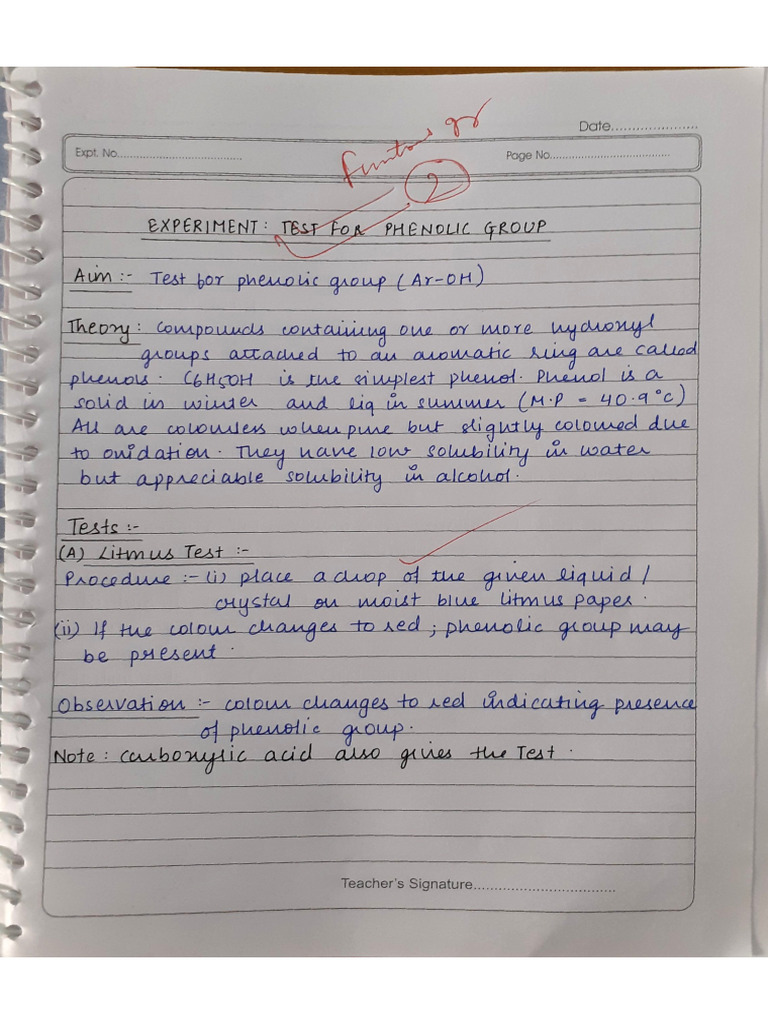 Functional gr
Date......................
Expt. No.......................................
Page No.....................................
2
EXPERIMENT: TEST FOR PHENOLIC GROUP
Aim :- Test for phenolic group (Ar-OH)
Theory: Compounds containing one or more hydroxyl
groups attached to an aromatic ring are called
phenols. C6H5OH is the simplest phenol. Phenol is a
solid in winter and liq in summer (M.P = 40.9°C)
All are colourless when pure but slightly coloured due
to oxidation. They have low solubility in water
but appreciable solubility in alcohol.
Tests :-
(A) Litmus Test :-
Procedure :- (i) place a drop of the given liquid/
crystal on moist blue litmus paper.
(ii) If the colour changes to red; phenolic group may
be present.
Observation :- colour changes to red indicating presence
of phenolic group.
Note : carboxylic acid also gives the Test.
Teacher's Signature..................................